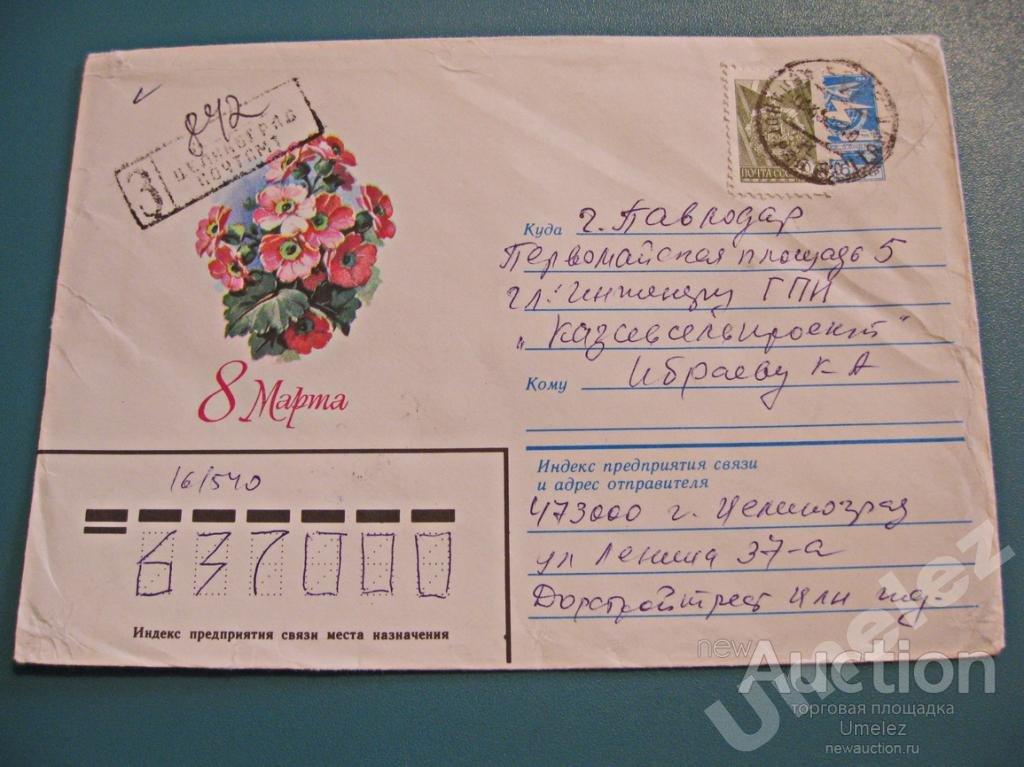 842
З
ЦЕЛИНОГРАД
ПОЧТАМТ
ПОЧТА СССР
Куда г. Павлодар
Первомайская площадь 5
Гл. Инженеру ГПИ
"Казсевсельпроект"
Кому Ибраеву К А
8 Марта
Индекс предприятия связи
и адрес отправителя
473000 г. Целиноград
ул Ленина 37-а
Дорстройтрест Цлн жд.
16/540
637000
Индекс предприятия связи места назначения
newAuction
торговая площадка
Umelez
newauction.ru
Umelez